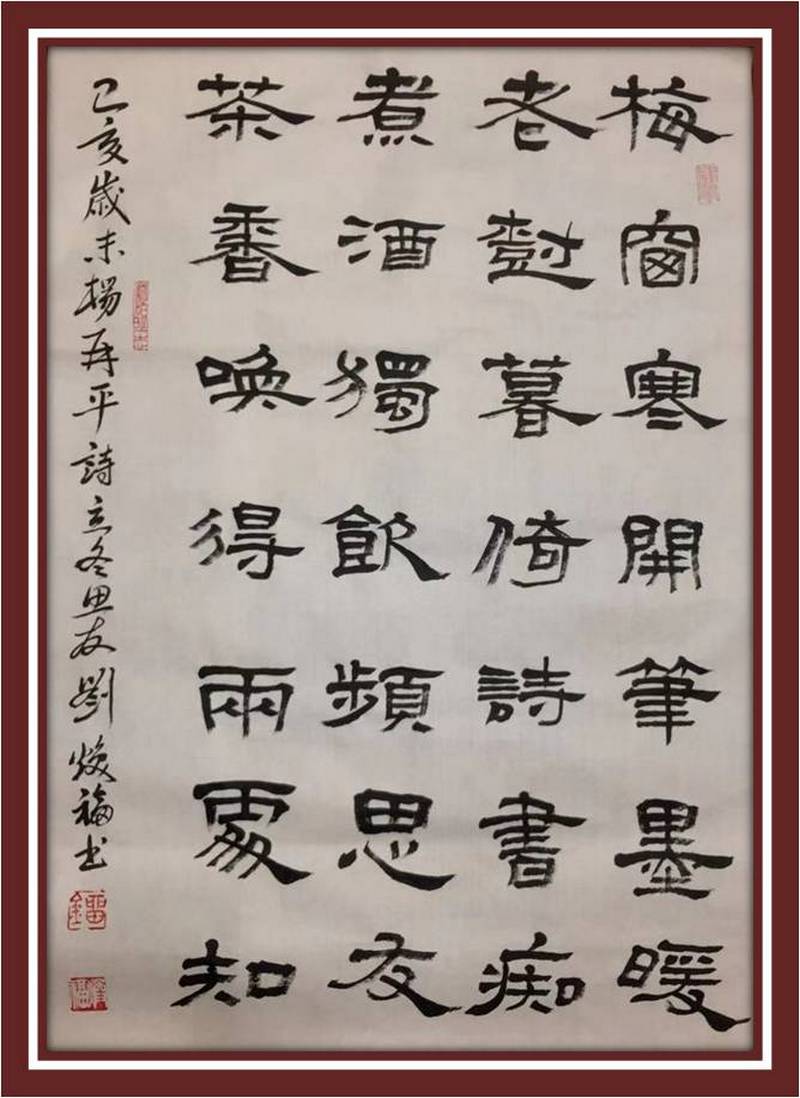 梅窗寒開筆墨暖
老對暮倚詩書痴
煮酒獨飲頻思友
茶香喚得兩處知
己亥歲末楊再平詩立冬思友劉煥福書